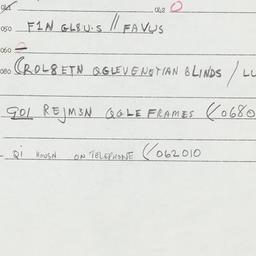 042 062
050 FIN GLBU.S // FAVUS
060
080 (ROLBETN QGLEVENOTIAN BLINDS / LU
901 REJM3N QGLE FRAMES (/0680
QI HOUSN ON TELEPHONE (/062010